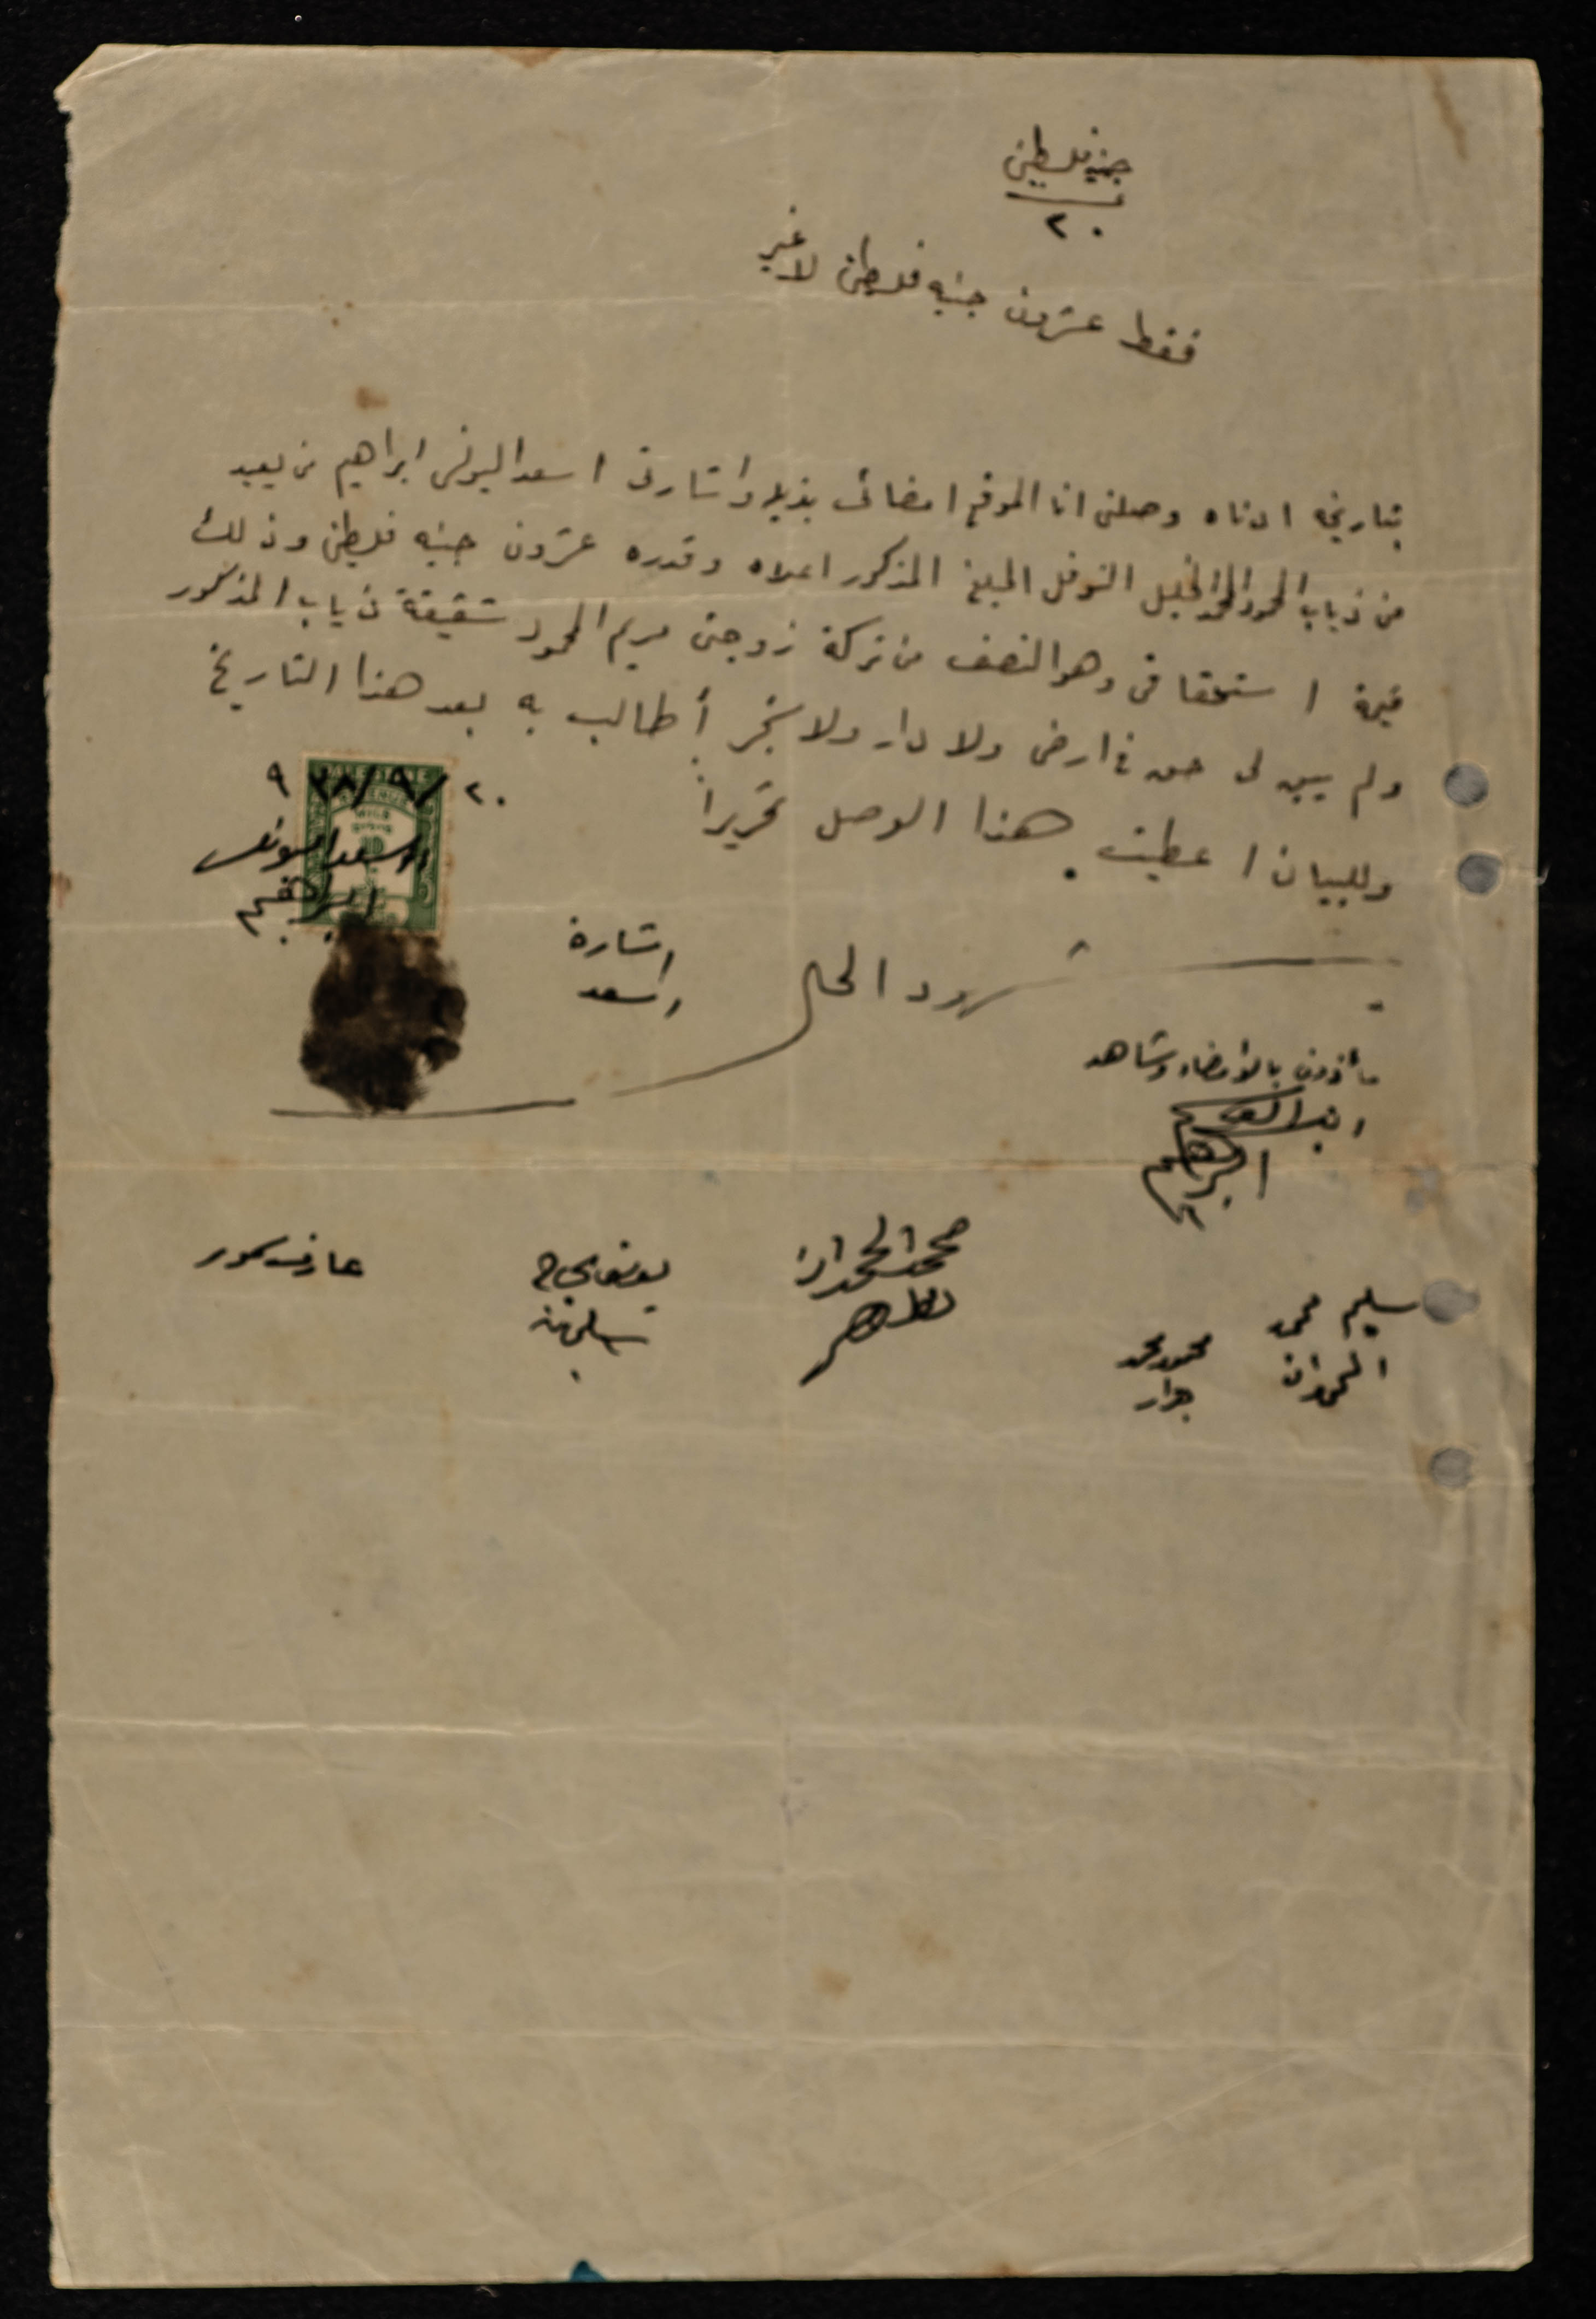 جنيه فلسطيني
٢٠
فقط عشرون جنيه فلسطيني لا غير
بتاريخه ادناه وصلني انا الموقع امضائي بذيله واشارتي اسعد اليونس ابراهيم من يعبد
من ذياب المحمود المحمد الخليل النوفل المبلغ المذكور اعلاه وقدره عشرون جنيه فلسطيني وذلك
قيمة استحقاقي وهو النصف من تركة زوجتي مريم المحمود شقيقة ذياب المذكور
ولم يبق لي حق في ارض ولا دار ولا شجر أطالب به بعد هذا التاريخ
وللبيان اعطيت هذا الوصل تحريراً
٢٠/٩/٩٣٨
اسعد اليونس
ابراهيم
اشارة
اسعد
شهود الحال
مأذون بالامضاء وشاهد
ابراهيم
سليم محمد
الحمدان
محمود محمد
جرار
محمد الحمدان
يوسف الحاج
عارف حمور
PALESTINE
REVENUE
MILS